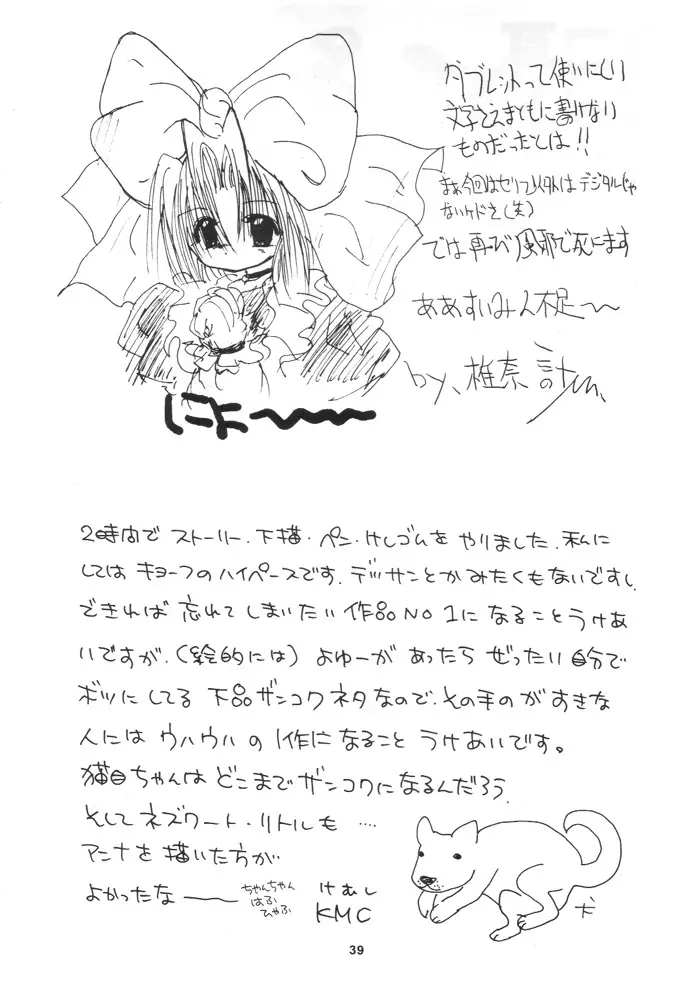 タブレットって使いにくい
文字さえまともに書けない
ものだったとは!!
まぁ今回はセリフ以外はデジタルじゃ
ないケドさ(笑)
では再び風邪で死にます
ああすいみん不足〜〜
by、椎奈
にょ〜〜〜
2時間でストーリー、下描・ペン・けしゴムをやりました。私に
してはキョーフのハイペースです。デッサンとかみたくもないですし、
できれば忘れてしまいたい作品NO1になることうけあ
いですが、(絵的には)よゆーがあったらぜったい自分で
ボツにしてる下品ザンコクネタなので、その手のがすきな
人にはウハウハの1作になることうけあいです。
猫目ちゃんはどこまでザンコクになるんだろう。
そしてネズワート・リトルも……
アンナを描いた方が
よかったなー
ちゃんちゃん
はふ
ひゃふ
けむし
KMC
犬
39